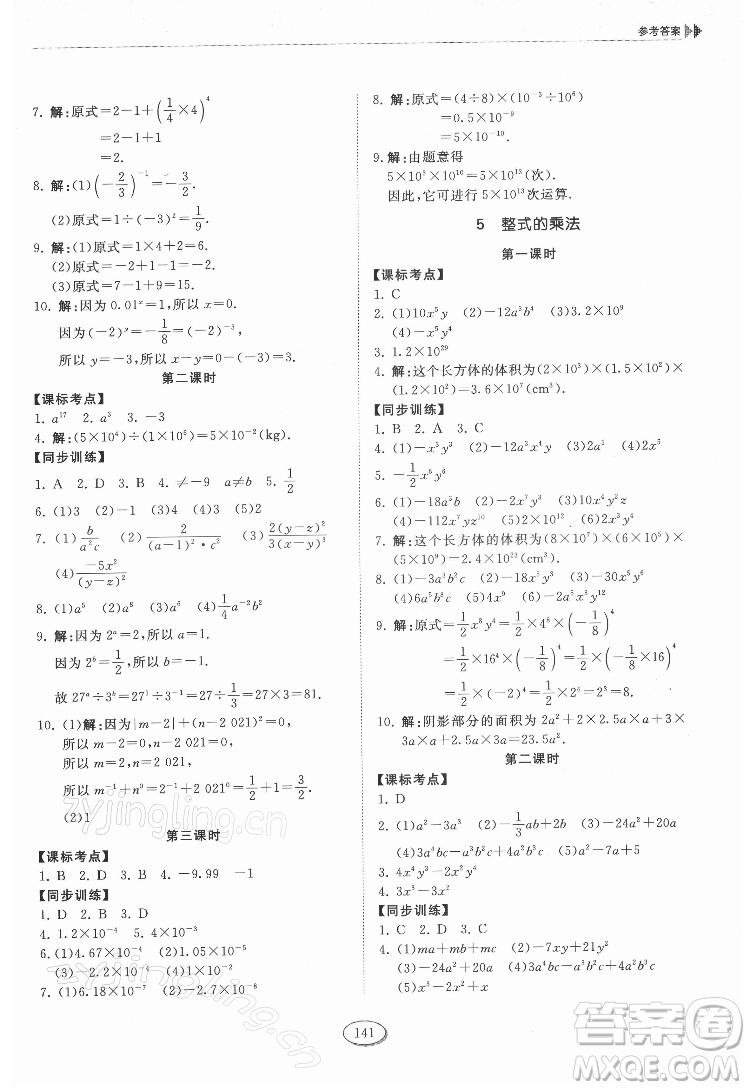 参考答案
7. 解:原式=2-1+(1/4×4)^4
=2-1+1
=2.
8. 解:(1)(-2/3)^-1=-3/2.
(2)原式=1÷(-3)²=1/9.
9. 解:(1)原式=1×4+2=6.
(2)原式=8-1+1=8.
(3)原式=1-8+7+15=15.
10. 解:因为 0.01^x=1,所以 x=0.
因为(-2)^y=-1/8=(-2)^-3,
所以 y=-3,所以 x>y.
第二课时
【课标考点】
1. a^17 2. a³ 3. -3
4. 解:(5×10^4)÷(1×10^6)=5×10^-2(kg).
【同步训练】
1. A 2. D 3. B 4. ≠-9 a≠b 5. 1/2
6. (1)3 (2)-1 (3)4 (4)1
7. (1)b/(a²c) (2)2/((a-1)²·c²) (3)2(y-z)²/3(x-y)³
(4)-5x²/(y-z)²
8. (1)a^5 (2)a^8 (3)a^6 (4)1/4a^-2b²
9. 解:因为 2^a=2,所以 a=1.
因为 2^b=1/2,所以 b=-1.
故 27^a÷3^b=27^1÷3^-1=27÷1/3=81.
10. (1)解:因为|m-2|+(n-2 021)²=0,
所以 m-2=0,n-2 021=0,
所以 m=2,n=2 021,
所以 m^-1+n^0=2^-1+2 021^0=3/2.
(2)1
第三课时
【课标考点】
1. B 2. B 3. D 4. -9.99 -1
【同步训练】
1. D 2. B 3. D
4. 1.2×10^-4 5. 4×10^-3
6. (1)4.67×10^-2 (2)1.05×10^-4
(3)-2.2×10^-4 (4)-3×10^-3
7. (1)6.18×10^-7 (2)-2.7×10^-8
8. 解:原式=(4÷8)×(10^-3÷10^6)
=0.5×10^-9
=5×10^-10.
9. 解:由题意得
5×10^8×10^5=5×10^13(次).
因此,它可进行 5×10^13次运算.
5 整式的乘法
第一课时
【课标考点】
1. C
2. (1)10x^5y (2)-12a³b^4 (3)2×10^9
(4)-x^5y^4
3. 1.2×10^29
4. 解:这个长方体的体积为(2×10³)×(1.5×10²)×
(1.2×10²)=3.6×10^7(cm³).
【同步训练】
1. B 2. A 3. C
4. (1)-x^5y^7 (2)-12a³x^4y (3)6a^5 (4)2x^4
5. -1/2x^6y^5
6. (1)-18a^5b (2)-36x^7y^5 (3)10x^4y²z
(4)-112x^7yz^10 (5)-5a^5b²
7. 解:这个长方体的体积为(8×10^7)×(6×10^5)×
(5×10^9)=2.4×10^23(cm³).
8. (1)-3a³b²c (2)-4a²b^5c³ (3)-a³b³c
(4)6a^6b^8c (5)4x^9 (6)-2a^5x^3y^12
9. 解:原式=1/2x^8y^4=1/2×4^8×(-1/8)^4
=1/2×16^4×(-1/8)^4=1/2×(-1/8×16)^4
=1/2×(-2)^4=1/2×2^4=8.
10. 解:阴影部分的面积为 2a²+2×2.5a×a+2×
3a×a+3a×2.5a=23.5a².
第二课时
【课标考点】
1. D
2. (1)a²-3a³ (2)-1/3ab+2b (3)-24a²+12a
(4)2a³b²-4a²b³ (5)-12a^4-3a³+3a²
3. 4x^4+2x³-2x²
4. 3x³-5x²
【同步训练】
1. C 2. D 3. C
4. (1)ma+mb+mc (2)-7xy+21y²
(3)-24a²+16a (4)-x³y+2x²y²
(5)4x³+8x²-4x
141
zyjingling.cn
zyjingling.cn
答案圈
MXQE.COM